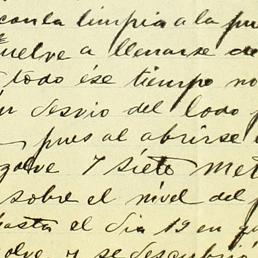 con la limpia a la pu
uelve a llenarse de
todo ése tiempo no
desvio del lodo
pues al abrirse
golve 7 siete Met
sobre el nivel del
hasta el dia 19 en
golve y se descubrió